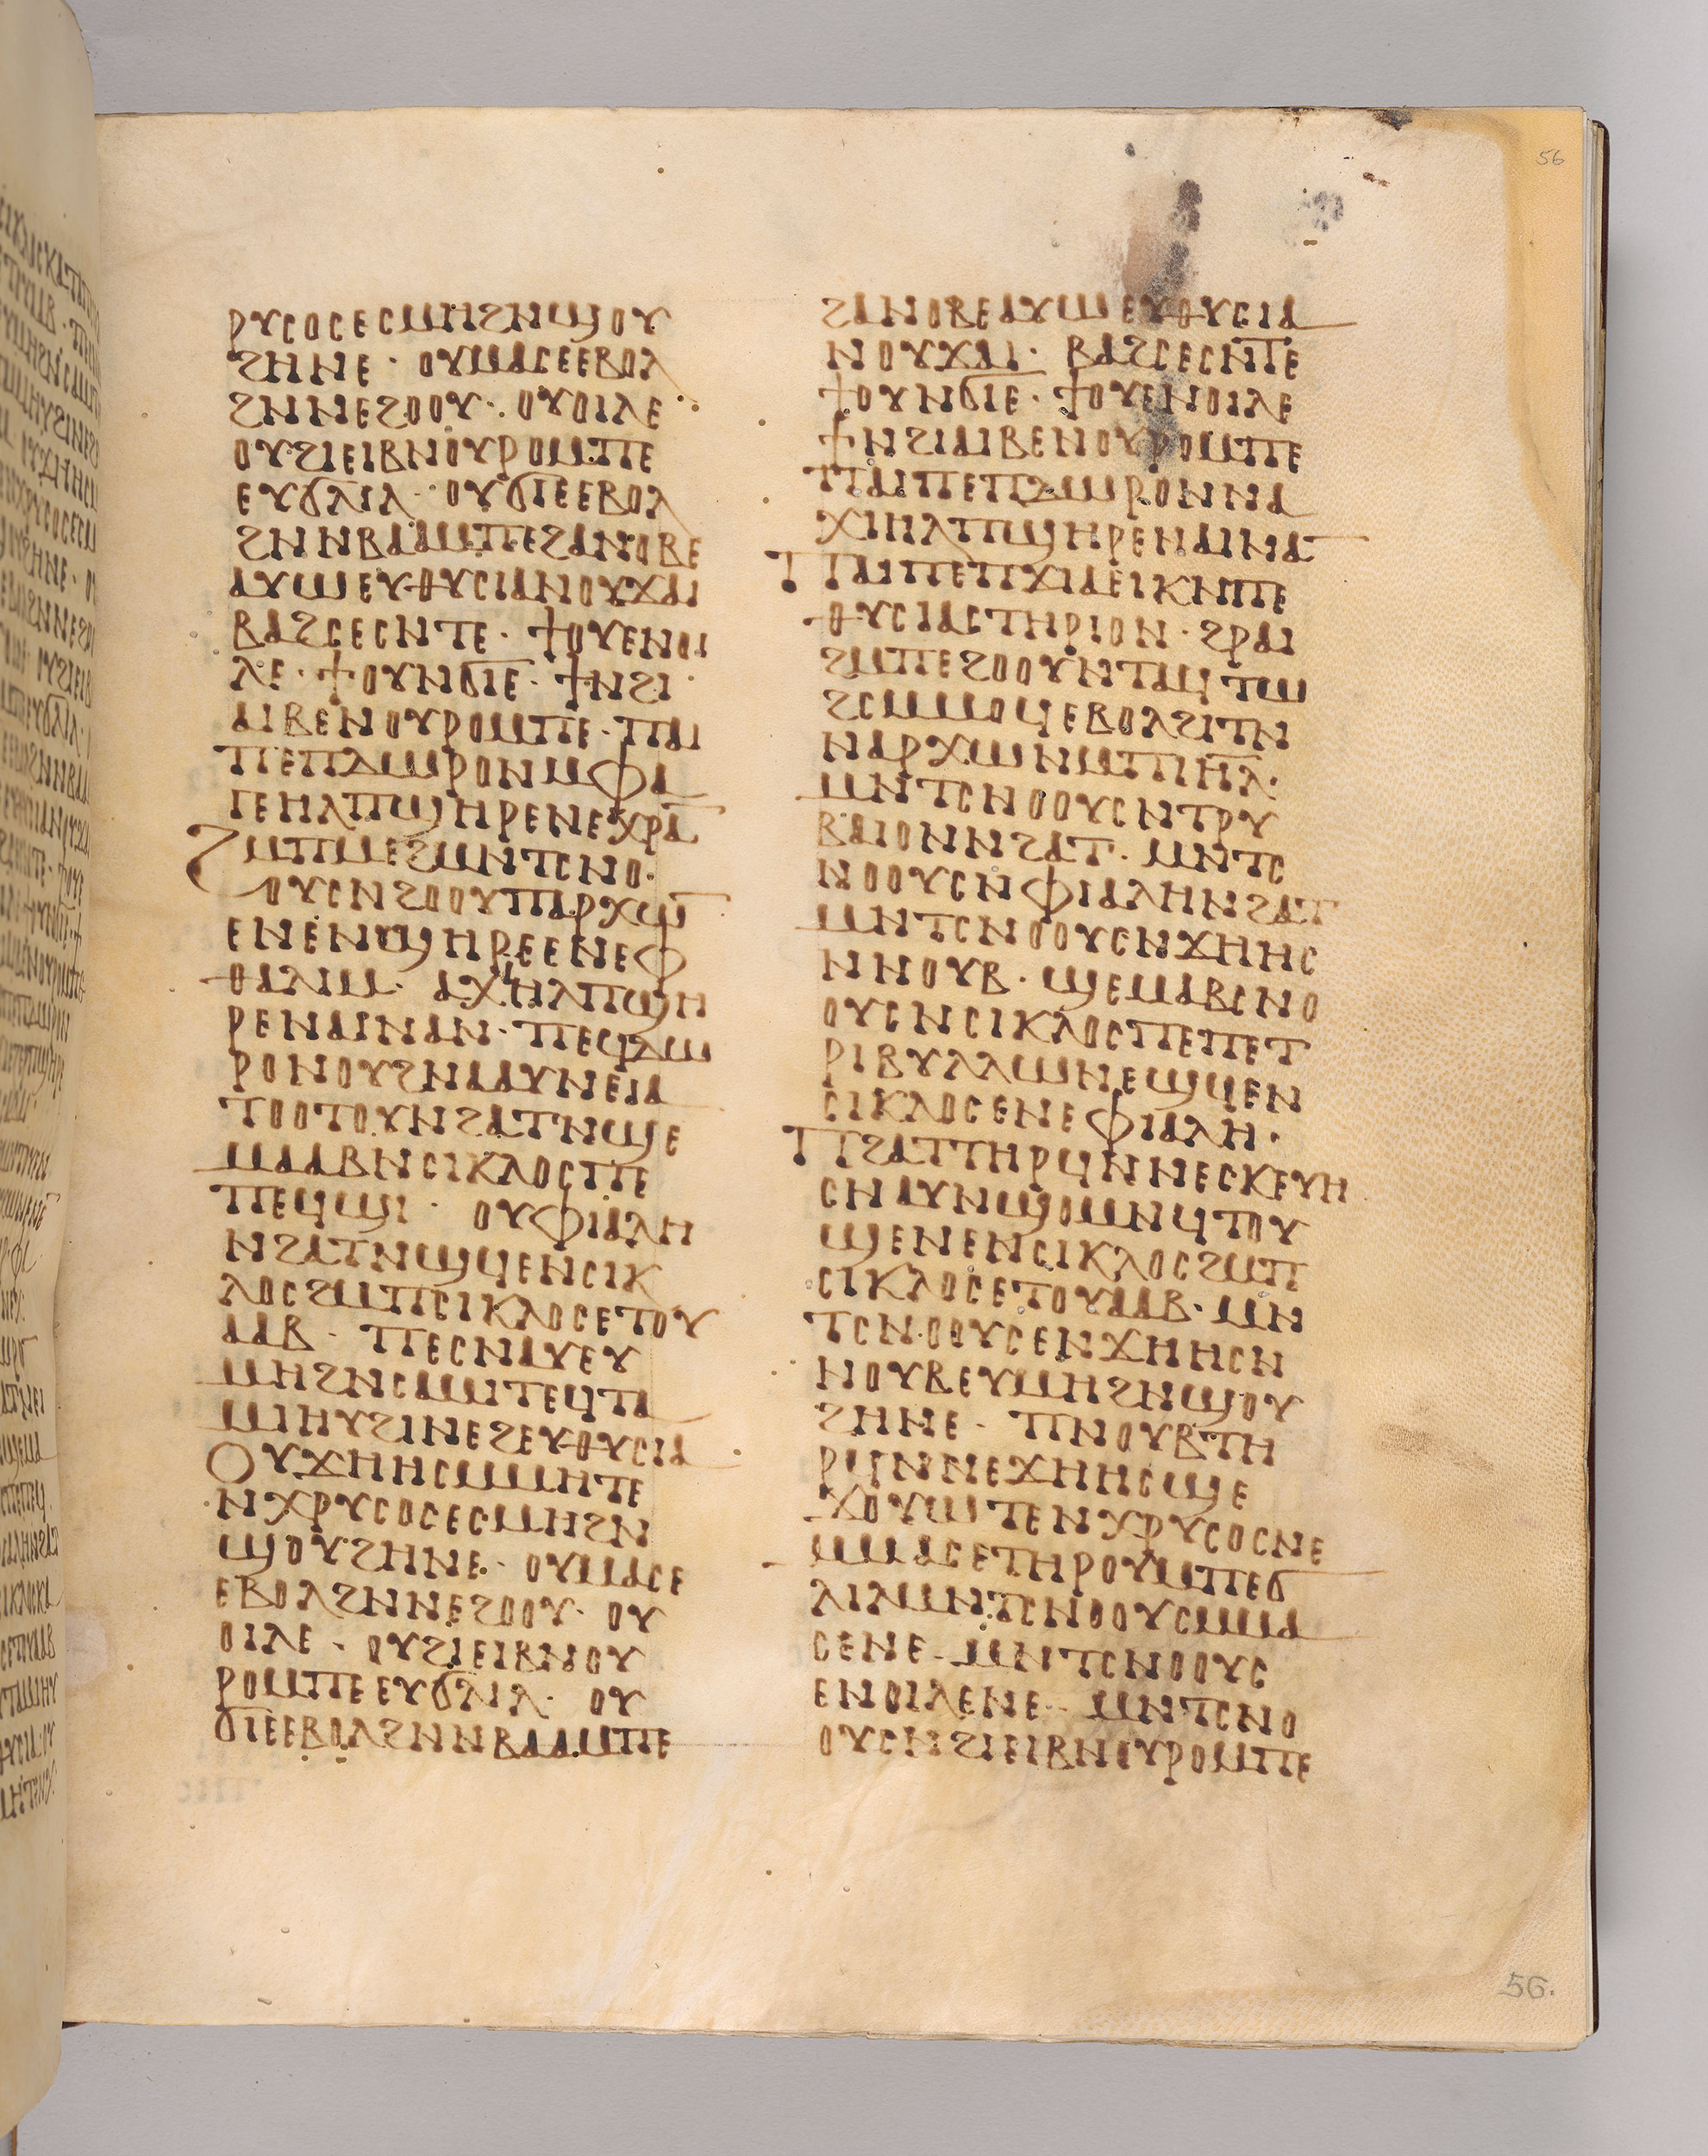 ⲣⲩⲥⲟⲥⲉⲥⲙⲏϩⲛϣⲟⲩ
ϩⲏⲛⲉ · ⲟⲩⲙⲁⲥⲉⲉⲃⲟⲗ
ϩⲛⲛⲉϩⲟⲟⲩ · ⲟⲩⲟⲓⲗⲉ
ⲟⲩϩⲓⲉⲓⲃⲛⲟⲩⲣⲟⲙⲡⲉ
ⲉⲩϭⲗⲓⲗ · ⲟⲩϭⲓⲉⲉⲃⲟⲗ
ϩⲛⲛⲃⲁⲁⲙⲡⲉϩⲁⲛⲟⲃⲉ
ⲁⲩⲱⲉⲩⲑⲩⲥⲓⲁⲛⲟⲩϫⲁⲓ
ⲃⲁϩⲥⲉⲥⲛⲧⲉ · ϯⲟⲩⲉⲛⲟⲓ
ⲗⲉ · ϯⲟⲩⲛϭⲓⲉ · ϯⲛϩⲓ
ⲁⲓⲃⲉⲛⲟⲩⲣⲟⲙⲡⲉ · ⲡⲁⲓ
ⲡⲉⲡⲇⲱⲣⲟⲛⲙⲫⲁ
ⲅⲉⲏⲗⲡϣⲏⲣⲉⲛⲉⲭⲣⲁ
ϩⲙⲡⲙⲉϩⲙⲛⲧⲥⲛⲟ
ⲟⲩⲥⲛϩⲟⲟⲩⲡⲁⲣⲭⲱ
ⲉⲛⲉⲛϣⲏⲣⲉⲉⲛⲉⲫ
ⲑⲁⲗⲓⲙ · ⲁⲭⲓⲏⲗⲡϣⲏ
ⲣⲉⲛⲁⲓⲛⲁⲛ · ⲡⲉϥⲇⲱ
ⲣⲟⲛⲟⲩϩⲛⲁⲁⲩⲛⲉⲓⲁ
ⲧⲟⲟⲧⲟⲩⲛϩⲁⲧⲛϣⲉ
ⲙⲁⲁⲃⲛⲥⲓⲕⲗⲟⲥⲡⲉ
ⲡⲉϥϣⲓ · ⲟⲩⲫⲓⲁⲗⲏ
ⲛϩⲁⲧⲛϣϥⲉⲛⲥⲓⲕ
ⲗⲟⲥϩⲙⲡⲥⲓⲕⲗⲟⲥⲉⲧⲟⲩ
ⲁⲁⲃ · ⲡⲉⲥⲛⲁⲩⲉⲩ
ⲙⲏϩⲛⲥⲁⲙⲓⲧⲉϥⲧⲁ
ⲙⲓⲏⲩϩⲓⲛⲉϩⲉⲩⲑⲩⲥⲓⲁ
ⲟⲩϫⲏⲏⲥⲙⲙⲏⲧⲉ
ⲛⲭⲣⲩⲥⲟⲥⲉⲥⲙⲏϩⲛ
ϣⲟⲩϩⲏⲛⲉ · ⲟⲩⲙⲁⲥⲉ
ⲉⲃⲟⲗϩⲛⲛⲉϩⲟⲟⲩ · ⲟⲩ
ⲟⲓⲗⲉ · ⲟⲩϩⲓⲉⲓⲃⲛⲟⲩ
ⲣⲟⲙⲡⲉⲉⲩϭⲗⲓⲗ · ⲟⲩ
ϭⲓⲉⲉⲃⲟⲗϩⲛⲛⲃⲁⲁⲙⲡⲉ
ϩⲁⲛⲟⲃⲉⲁⲩⲱⲉⲩⲑⲩⲥⲓⲁ
ⲛⲟⲩϫⲁⲓ · ⲃⲁϩⲥⲉⲥⲛⲧⲉ
ϯⲟⲩⲛϭⲓⲉ · ϯⲟⲩⲉⲛⲟⲓⲗⲉ
ϯⲛϩⲓⲁⲓⲃⲉⲛⲟⲩⲣⲟⲙⲡⲉ
ⲡⲁⲓⲡⲉⲡⲇⲱⲣⲟⲛⲛⲁ
ⲭⲓⲏⲗⲡϣⲏⲣⲉⲛⲁⲓⲛⲁ
ⲡⲁⲓⲡⲉⲡϫⲓⲁⲉⲓⲕⲙⲡⲉ
ⲑⲩⲥⲓⲁⲥⲧⲏⲣⲓⲟⲛ · ϩⲣⲁⲓ
ϩⲙⲡⲉϩⲟⲟⲩⲛⲧⲁϥⲧⲱ
ϩⲥⲙⲙⲟϥⲉⲃⲟⲗϩⲓⲧⲛ
ⲛⲁⲣⲭⲱⲛⲙⲡⲓⲏⲗ ·
ⲙⲛⲧⲥⲛⲟⲟⲩⲥⲛⲧⲣⲩ
ⲃⲁⲓⲟⲛⲛϩⲁⲧ · ⲙⲛⲧⲥ
ⲛⲟⲟⲩⲥⲛⲫⲓⲁⲗⲏⲛϩⲁⲧ
ⲙⲛⲧⲥⲛⲟⲟⲩⲥⲛϫⲏⲏⲥ
ⲛⲛⲟⲩⲃ · ϣⲉⲙⲁⲃⲥⲛⲟ
ⲟⲩⲥⲛⲥⲓⲕⲗⲟⲥⲡⲉⲡⲉⲧ
ⲣⲓⲃⲩⲗⲗⲱⲛⲉϣϥⲉⲛ
ⲥⲓⲕⲗⲟⲥⲉⲛⲉⲫⲓⲁⲗⲏ ·
ⲡϩⲁⲧⲧⲏⲣϥⲛⲛⲉⲥⲕⲉⲩⲏ
ⲥⲛⲁⲩⲛϣⲟⲙⲛϥⲧⲟⲩ
ϣⲉⲛⲉⲛⲥⲓⲕⲗⲟⲥϩⲙⲡ
ⲥⲓⲕⲗⲟⲥⲉⲧⲟⲩⲁⲁⲃ · ⲙⲛ
ⲧⲥⲛⲟⲟⲩⲥⲉⲛϫⲏⲏⲥⲛ
ⲛⲟⲩⲃⲉⲩⲙⲏϩⲛϣⲟⲩ
ϩⲏⲛⲉ · ⲡⲛⲟⲩⲃⲧⲏ
ⲣϥⲛⲛⲉϫⲏⲏⲥϣⲉ
ϫⲟⲩⲱⲧⲉⲛⲭⲣⲩⲥⲟⲥⲛⲉ
ⲙⲙⲁⲥⲉⲧⲏⲣⲟⲩⲙⲡⲉϭ
ⲗⲓⲗⲙⲛⲧⲥⲛⲟⲟⲩⲥⲙⲙⲁ
ⲥⲉⲛⲉ · ⲙⲛⲧⲥⲛⲟⲟⲩⲥ
ⲉⲛⲟⲓⲗⲉⲛⲉ · ⲙⲛⲧⲥⲛⲟ
ⲟⲩⲥⲛϩⲓⲉⲓⲃⲛⲟⲩⲣⲟⲙⲡⲉ
56
56.